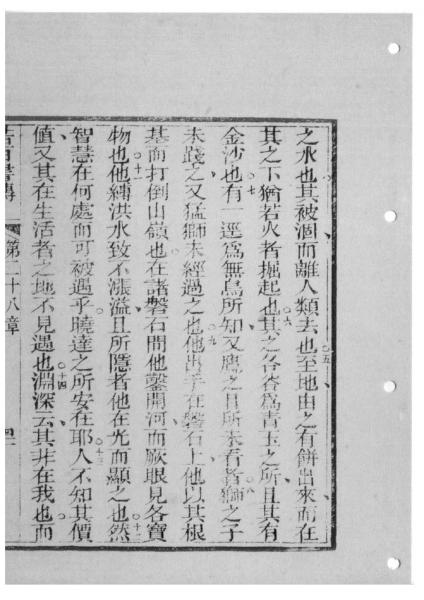 之水也其被涸而離人類去也○五至地由之有餅出來而在
其之下猶若火者掘起也○六其之各石爲靑玉之所且其有
金沙也○七有一逕爲無鳥所知又鷹之目所未看着○八獅之子
未踐之又猛獅未經過之也○九他出手在磐石上他以其根
基而打倒山嶺也○十在諸磐石間他鑿開河而厥眼見各寶
物也○十一他縛洪水致不漲溢且所隱者他在光而顯之也○十二然
智慧在何處而可被遇乎曉達之所安在耶○十三人不知其價
值又其在生活者之地不見遇也○十四淵深云其非在我也○而
第二十八章